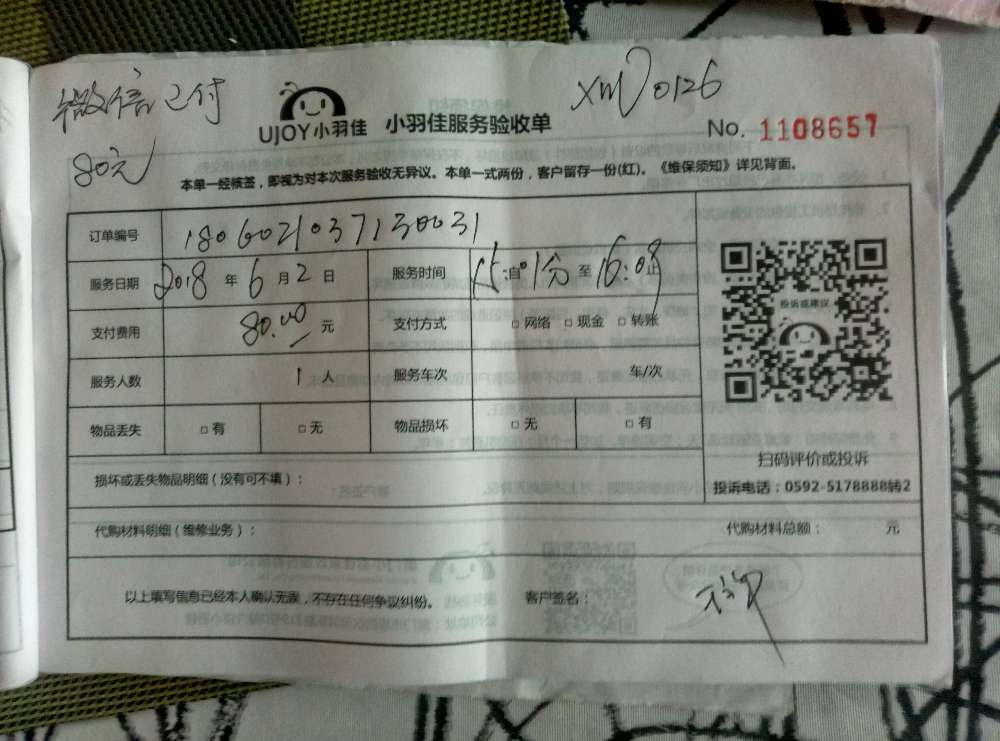 微信已付
80元
XM 0126
UJOY小羽佳 小羽佳服务验收单
No. 1108657
本单一经核签，即视为对本次服务验收无异议。本单一式两份，客户留存一份(红)。《维保须知》详见背面。
订单编号 1806021037130031
服务日期 2018 年 6 月 2 日 服务时间 15:自01分 至 16:08止
支付费用 80.00 元 支付方式 □ 网络 □ 现金 □ 转账
投诉或建议
服务人数 1 人 服务车次 车/次
物品丢失 □ 有 □ 无 物品损坏 □ 无 □ 有
扫码评价或投诉
投诉电话：0592-5178888转2
损坏或丢失物品明细（没有可不填）：
代购材料明细（维修业务）： 代购材料总额： 元
以上填写信息已经本人确认无误，不存在任何争议纠纷。 客户签名：